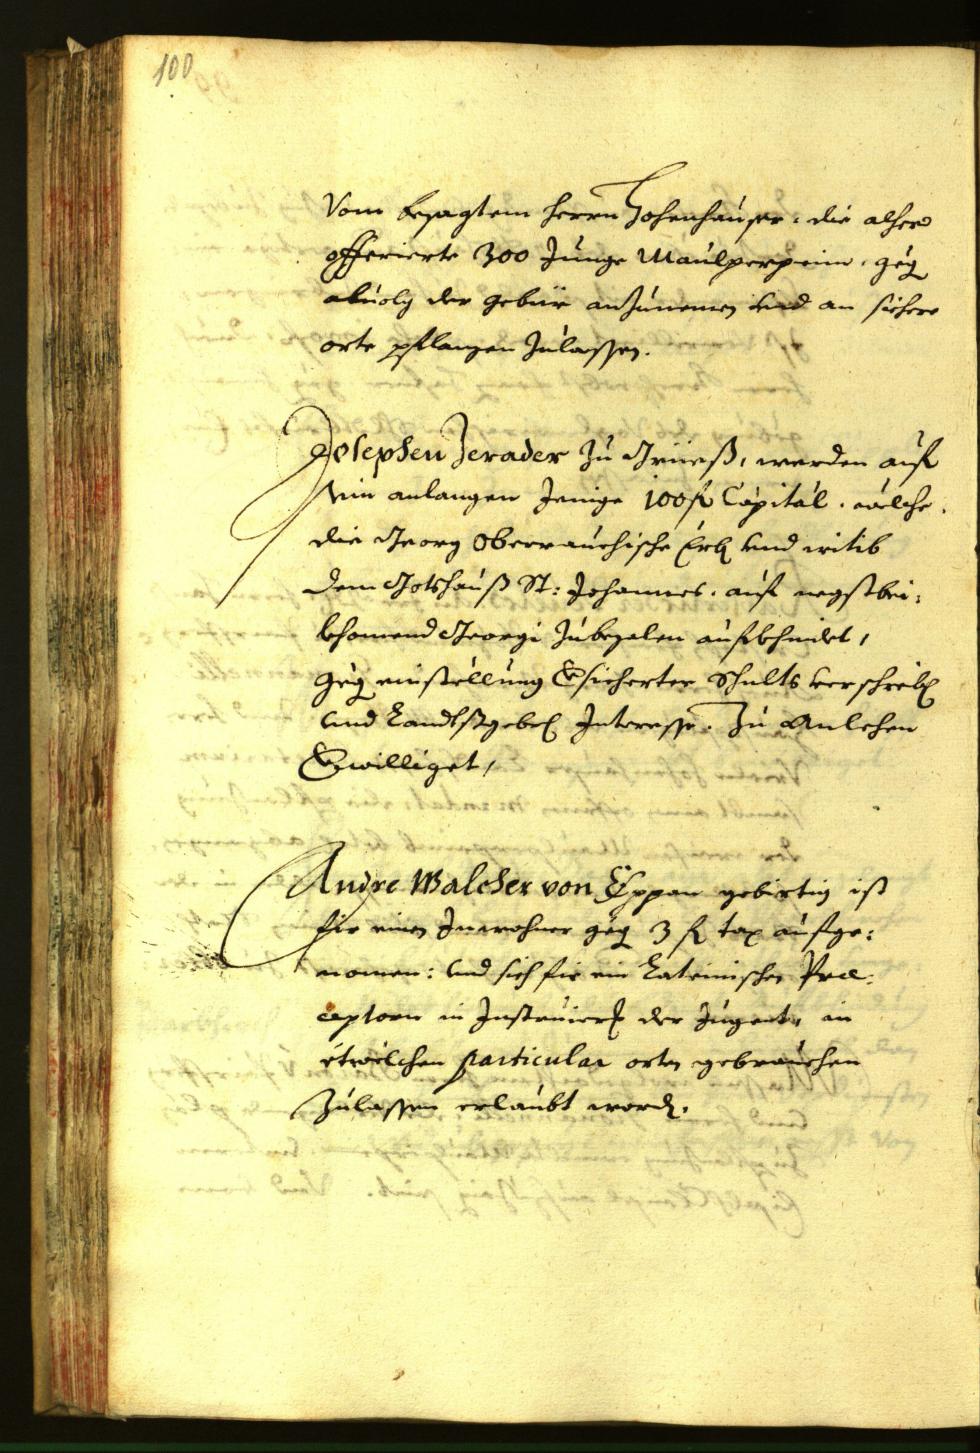 100
Vom besagtem herrn Hohenhauser, die alhero
offerierte 300 Junge Maulperpeim, geg
abuolg der gebür anzunemen vnd an sichere
orte pflanzen zulassen.
Josephen Zerader zu Grieß, werden auf
sein anlangen Jenige 100 fl Capital, welche
die Georg Oberrauchische Erb vnd witib
dem Gotshauß St: Johannes, auf negstbei:
khomend Georgi zubezalen aufkhindet,
geg einstellung versicherter Schults verschreib
vnd Landtsgebreuch Interesse, zu Anlehen
verwilliget,
Andre Walcher von Eppan gebirtig ist
fir einen Inwohner geg 3 fl tax aufge:
nomen: vnd sich fir ein Lateinischen Præ:
ceptorn in Instruier der Jugent, in
etwelchen particular orten gebrauchen
Zulassen erlaubt word.